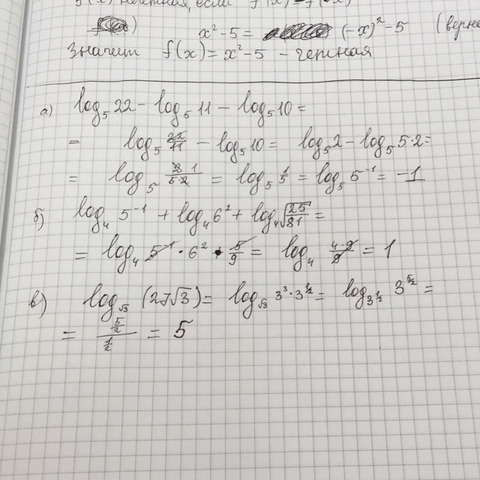 f(x) нечетная, если f(x) = f(-x)
x² - 5 = (-x)² - 5 (верно
Значит f(x) = x² - 5 - четная
а) log₅ 22 - log₅ 11 - log₅ 10 =
= log₅ 22/11 - log₅ 10 = log₅ 2 - log₅ 5·2 =
= log₅ 2 1/5·2 = log₅ 1/5 = log₅ 5⁻¹ = -1
б) log₄ 5⁻¹ + log₄ 6² + log₄ √(25/81) =
= log₄ 5⁻¹ · 6² · 5/9 = log₄ 4·9/9 = 1
в) log_√3 (27√3) = log_√3 3³·3^(1/2) = log_3^(1/2) 3^(5/2) =
= (5/2)/(1/2) = 5